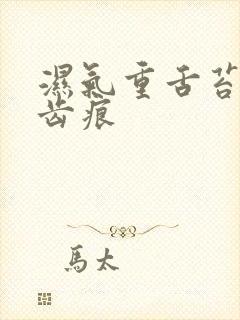 濕氣重舌苔
齿痕
馬太